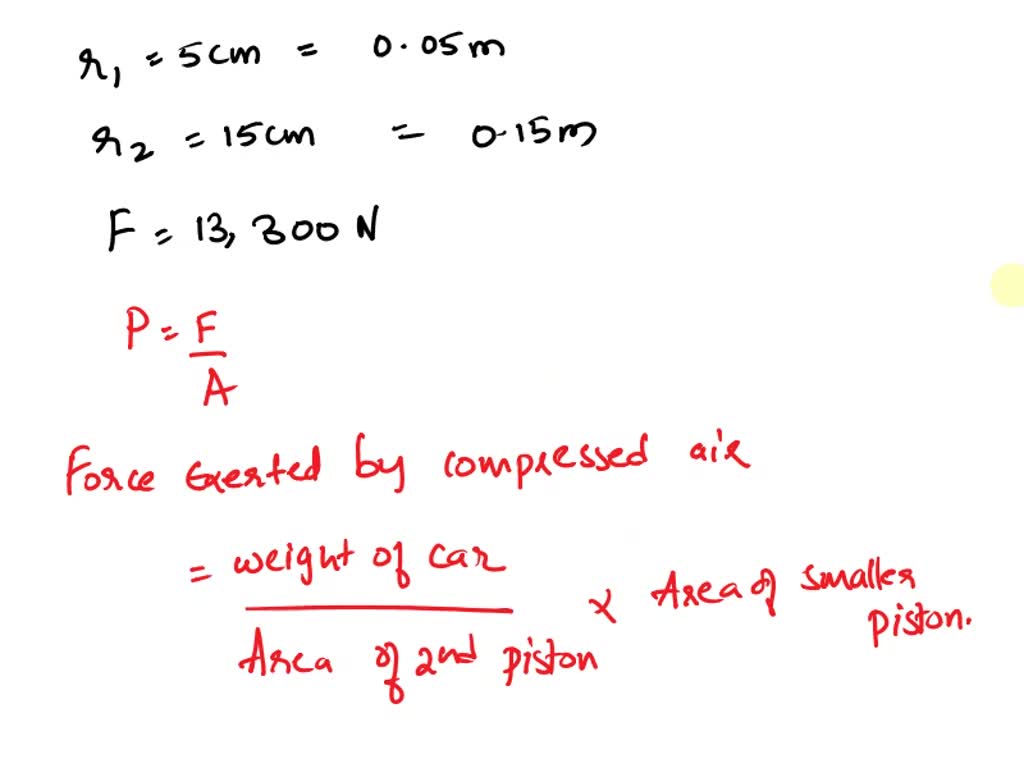 r₁ = 5cm = 0.05m
r₂ = 15cm = 0.15m
F = 13,300 N
P = F
A
Force exerted by compressed air
= weight of car
Area of 2nd piston × Area of smaller
piston.